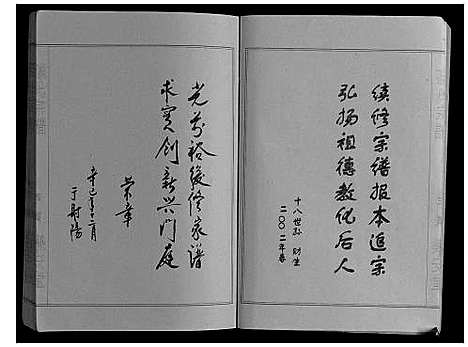 续修宗谱报本追宗
弘扬祖德教化后人
十八世孙 财生
二〇〇二年春
光前裕後修家谱
求实创新兴门庭
荣华
辛巳年十二月
于射陽